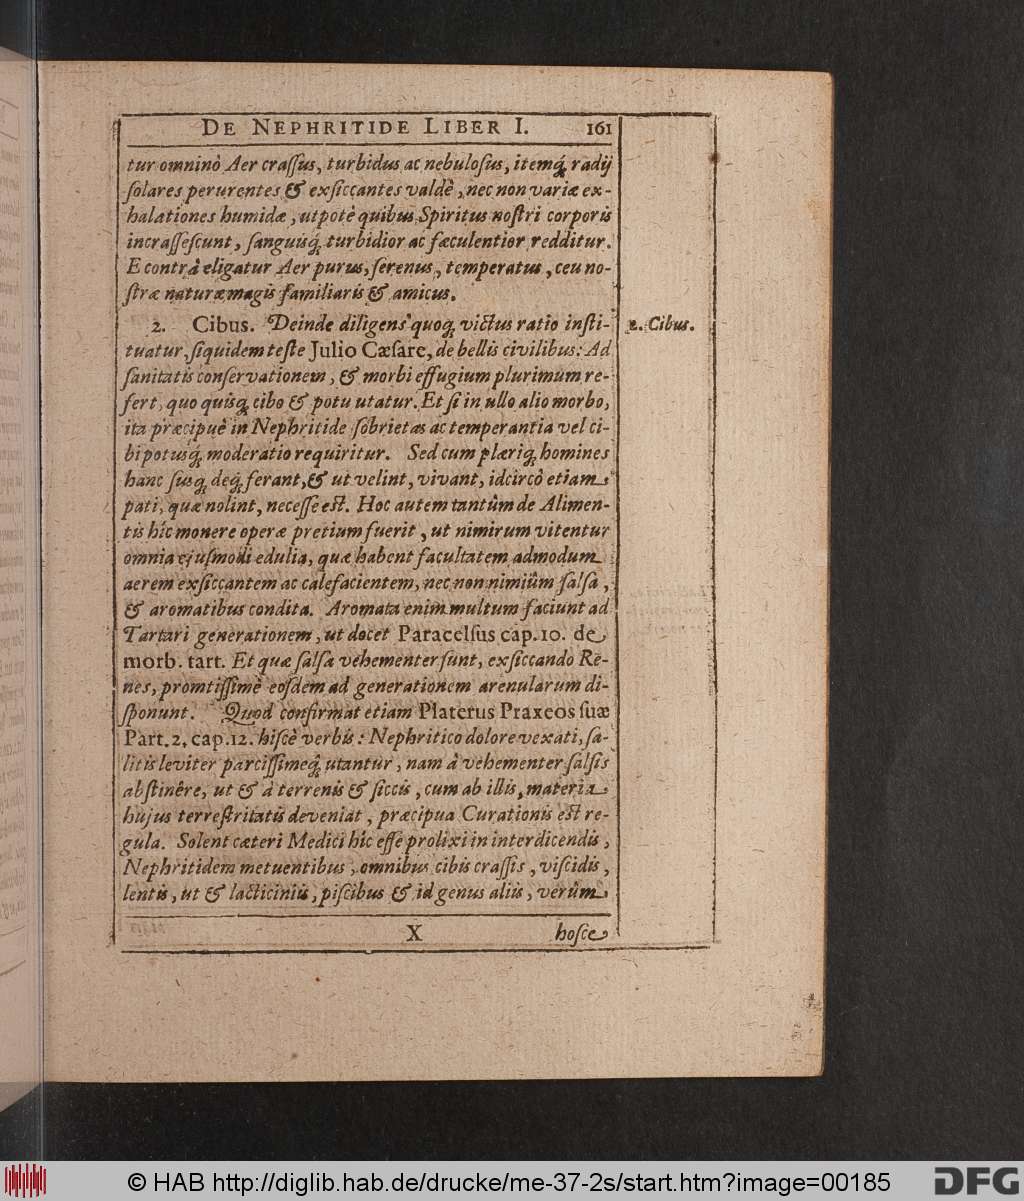 DE NEPHRITIDE LIBER I. 161
tur omninò Aer craſſus, turbidus ac nebuloſus, itemq́; radij
ſolares perurentes & exſiccantes valdè, nec non variæ ex-
halationes humidæ, utpotè quibus Spiritus noſtri corporis
incraſſeſcunt, ſanguisq́; turbidior ac fæculentior redditur.
E contrà eligatur Aer purus, ſerenus, temperatus, ceu no-
ſtræ naturæ magis familiaris & amicus.
2. Cibus. Deinde diligens quoq; victus ratio inſti-
tuatur, ſiquidem teſte Julio Cæſare, de bellis civilibus: Ad
ſanitatis conſervationem, & morbi effugium plurimum re-
fert, quo quisq; cibo & potu utatur. Et ſi in ullo alio morbo,
ita præcipuè in Nephritide ſobrietas ac temperantia vel ci-
bi potusq́; moderatio requiritur. Sed cum plæriq; homines
hanc ſusq; deq́; ferant, & ut velint, vivant, idcircò etiam
pati, quæ nolint, neceſſe est. Hoc autem tantùm de Alimen-
tis hîc monere operæ pretium fuerit, ut nimirum vitentur
omnia ejuſmodi edulia, quæ habent facultatem admodum
aerem exſiccantem ac calefacientem, nec non nimiùm ſalſa,
& aromatibus condita. Aromata enim multum faciunt ad
Tartari generationem, ut docet Paracelſus cap. 10. de
morb. tart. Et quæ ſalſa vehementer ſunt, exſiccando Re-
nes, promtiſſimè eoſdem ad generationem arenularum di-
ſponunt. Quod confirmat etiam Platerus Praxeos ſuæ
Part. 2. cap. 12. hiſcè verbis: Nephritico dolore vexati, ſa-
litis leviter parciſſimeq́; utantur, nam à vehementer ſalſis
abſtinêre, ut & à terrenis & ſiccis, cum ab illis, materia
hujus terreſtritatis deveniat, præcipua Curationis est re-
gula. Solent cæteri Medici hîc eſſe prolixi in interdicendis,
Nephritidem metuentibus, omnibus cibis craſſis, viſcidis,
lentis, ut & lacticiniis, piſcibus & id genus aliis, verùm
X hoſce
2. Cibus.
© HAB http://diglib.hab.de/drucke/me-37-2s/start.htm?image=00185
DFG